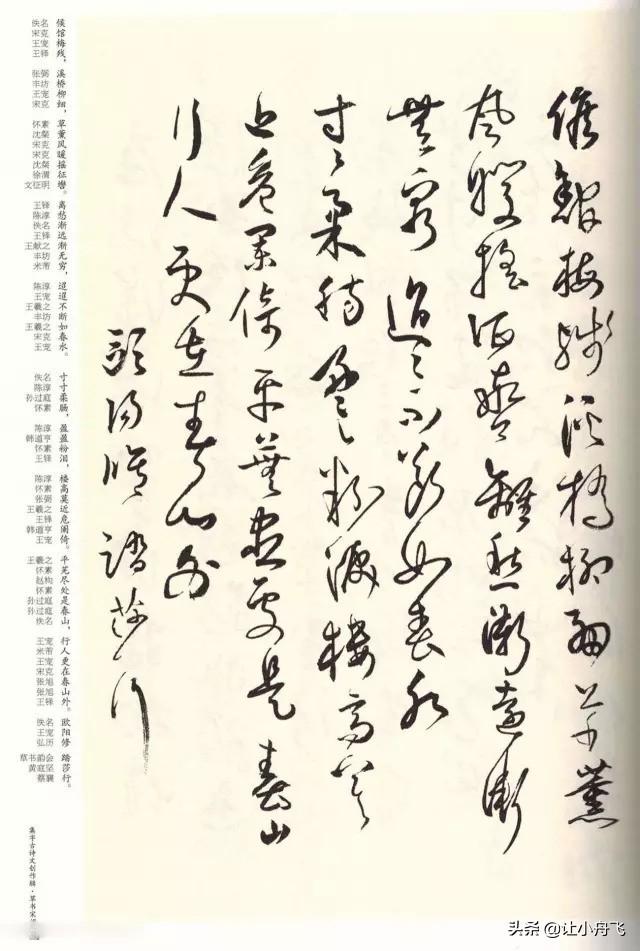 候館梅殘溪橋柳細草薰
風暖搖征轡離愁漸遠漸
無窮迢々不斷如春水
寸々柔腸盈々粉淚樓高莫
近危闌倚平蕪盡處是春山
行人更在春山外
歐陽修踏莎行
候馆梅残，
佚名 宋克 王宠 王铎
溪桥柳细，
张弼 丰坊 王宠 宋克
草薰风暖摇征辔。
怀素 沈粲 宋克 宋克 沈粲 徐渭 文征明
离愁渐远渐无穷，
王铎 陈淳 佚名 王铎 王献之 丰坊 米芾
迢迢不断如春水。
陈淳 王宠 王羲之 丰坊 王羲之 宋克 王宠
寸寸柔肠，
佚名 陈淳 孙过庭 怀素
盈盈粉泪，
陈淳 韩道亨 怀素 王铎
楼高莫近危阑倚。
陈淳 怀素 张弼 王羲之 王铎 韩道亨 王宠
平芜尽处是春山，
王羲之 怀素 赵构 怀素 孙过庭 孙过庭 佚名
行人更在春山外。
王宠 米芾 王宠 宋克 张旭 张旭 王铎
欧阳修
佚名 王宠 弘历
踏莎行。
草书韵会 黄庭坚 蔡襄
集字古诗文创作籍·草书宋
头条 @让小舟飞